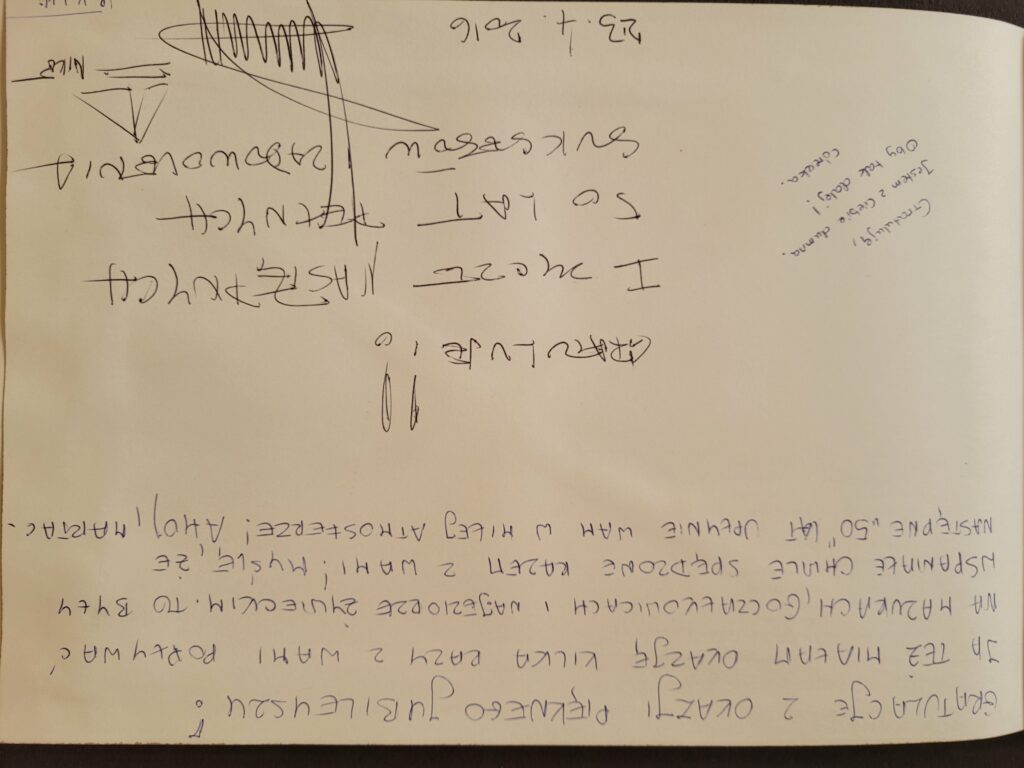 GRATULACJE Z OKAZJI PIĘKNEGO JUBILEUSZU!
JA TEŻ MIAŁAM OKAZJĘ KILKA RAZY Z WAMI POPŁYWAĆ
NA MAZURACH, GOCZAŁKOWICACH I NA JEZIORZE ŻYWIECKIM. TO BYŁY
WSPANIAŁE CHWILE SPĘDZONE RAZEM Z WAMI; MYŚLĘ, ŻE
NASTĘPNE „50" LAT UPŁYNIE WAM W MIŁEJ ATMOSFERZE! AHOJ,
GRATULUJE!!
I MOŻE NASTĘPNYCH
50 LAT PEŁNYCH
SUKCESÓW ZADOWOLENIA
23.4.2016
Gratuluję,
Jestem z Ciebie dumna.
Oby tak dalej!
Córeczka.